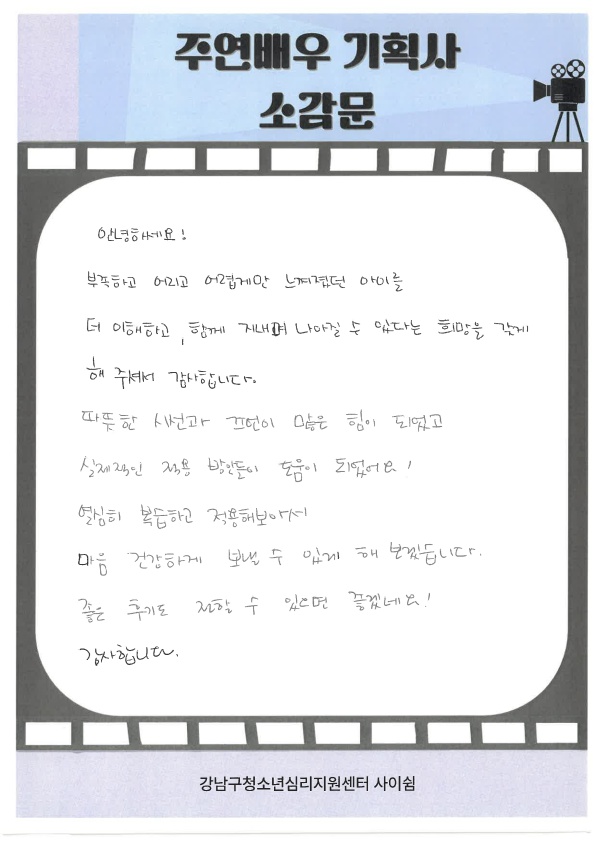 주연배우 기획사
소감문
안녕하세요!
부족하고 어리고 어렵게만 느껴졌던 아이를
더 이해하고, 함께 지내며 나아질 수 있다는 희망을 갖게
해 주셔서 감사합니다.
따뜻한 시선과 조언이 많은 힘이 되었고
실제적인 적용 방안들이 도움이 되었어요!
열심히 복습하고 적용해보아서
마음 건강하게 보낼 수 있게 해 보겠습니다.
좋은 후기도 전할 수 있으면 좋겠네요!
감사합니다.
강남구청소년심리지원센터 사이쉼